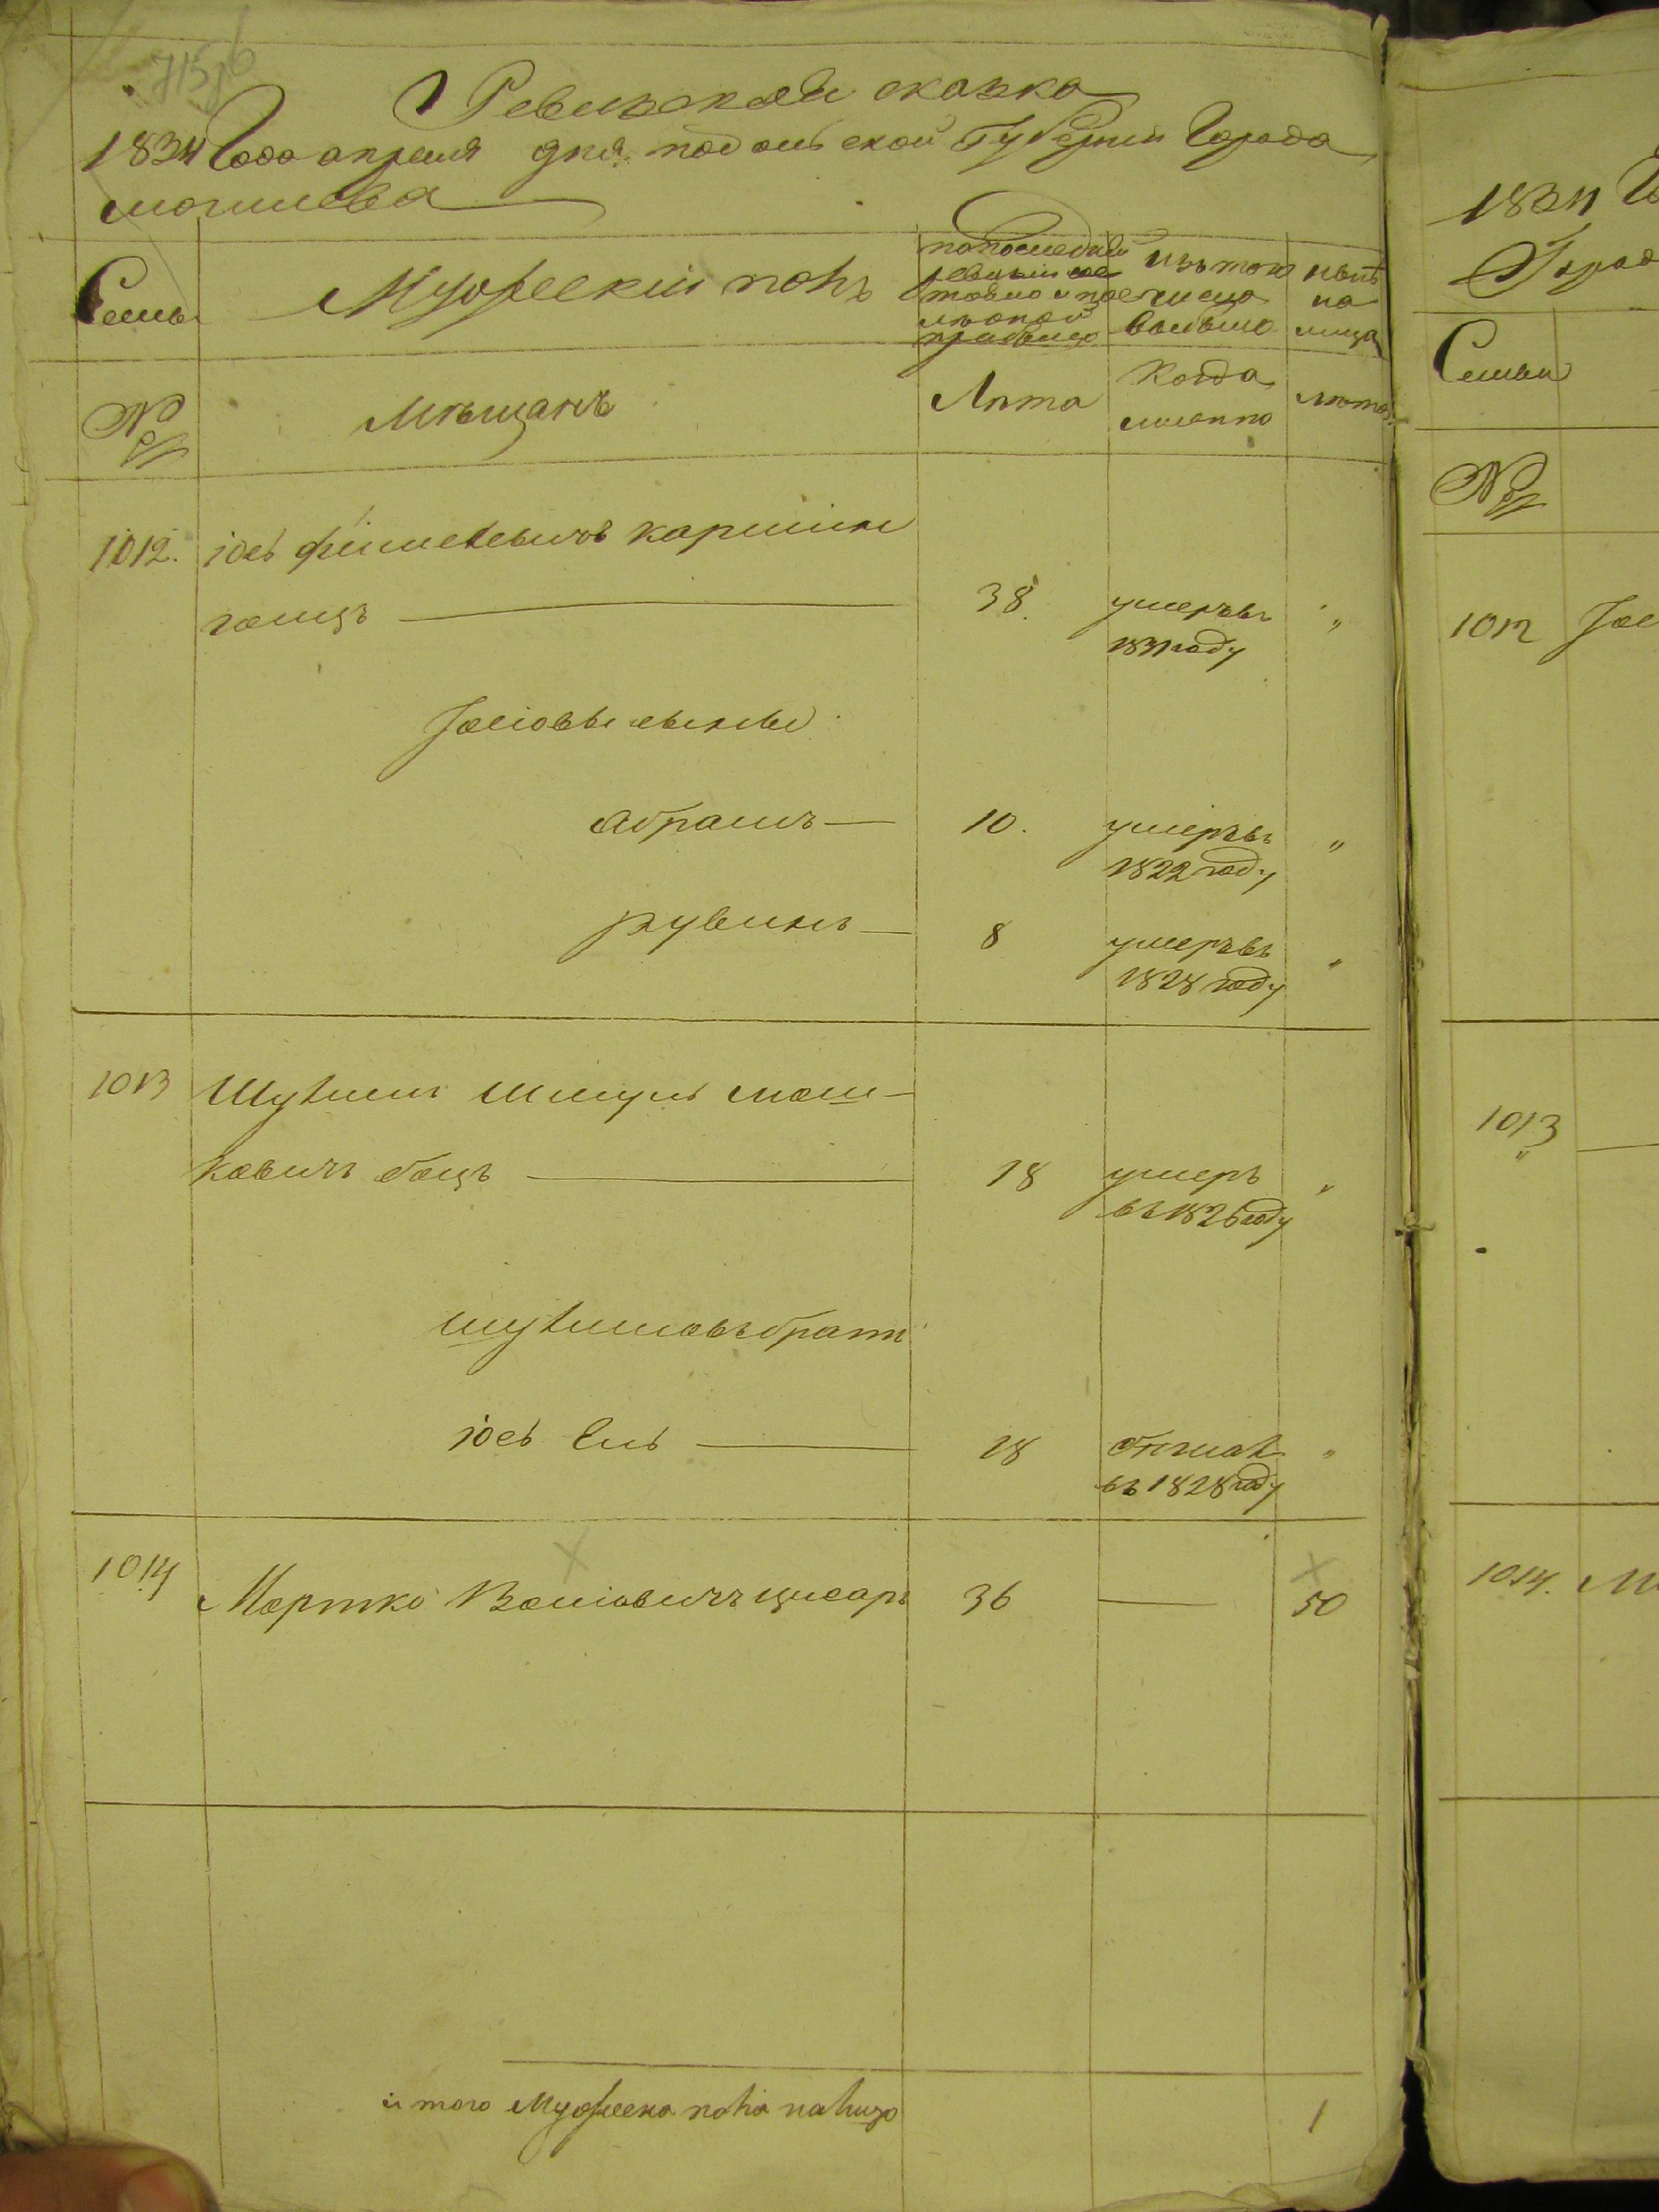 Ревизская сказка
1834 Года апреля дня подольской Губернии Города
могилева
Семьи
Мужеский полъ
по последней
ревизии со-
стояло и после
оной
прибыло
изъ того
числа
выбыло
ныне
на
лицо
№
Мещанъ
Лѣта
Когда
имянно
лѣта
1012. іось фишелевичъ
гоищъ 38. умеръ въ „
1831 году
Іосіовы сыны
абрамъ 10. умеръ въ „
1822 году
рувинъ 8 умеръ въ „
1828 году
1013 Шулим Шмуль мош-
ковичъ боцъ 18 умеръ „
въ 1826 году
шулимовъ братъ
іось Ель 18 бѣжал „
въ 1828 году
1014 Мортко цисаръ 36 50
и того Мужеска пола налицо 1
1834 Го
Город
Семьи
№
1012 Іос
1013
1014. М